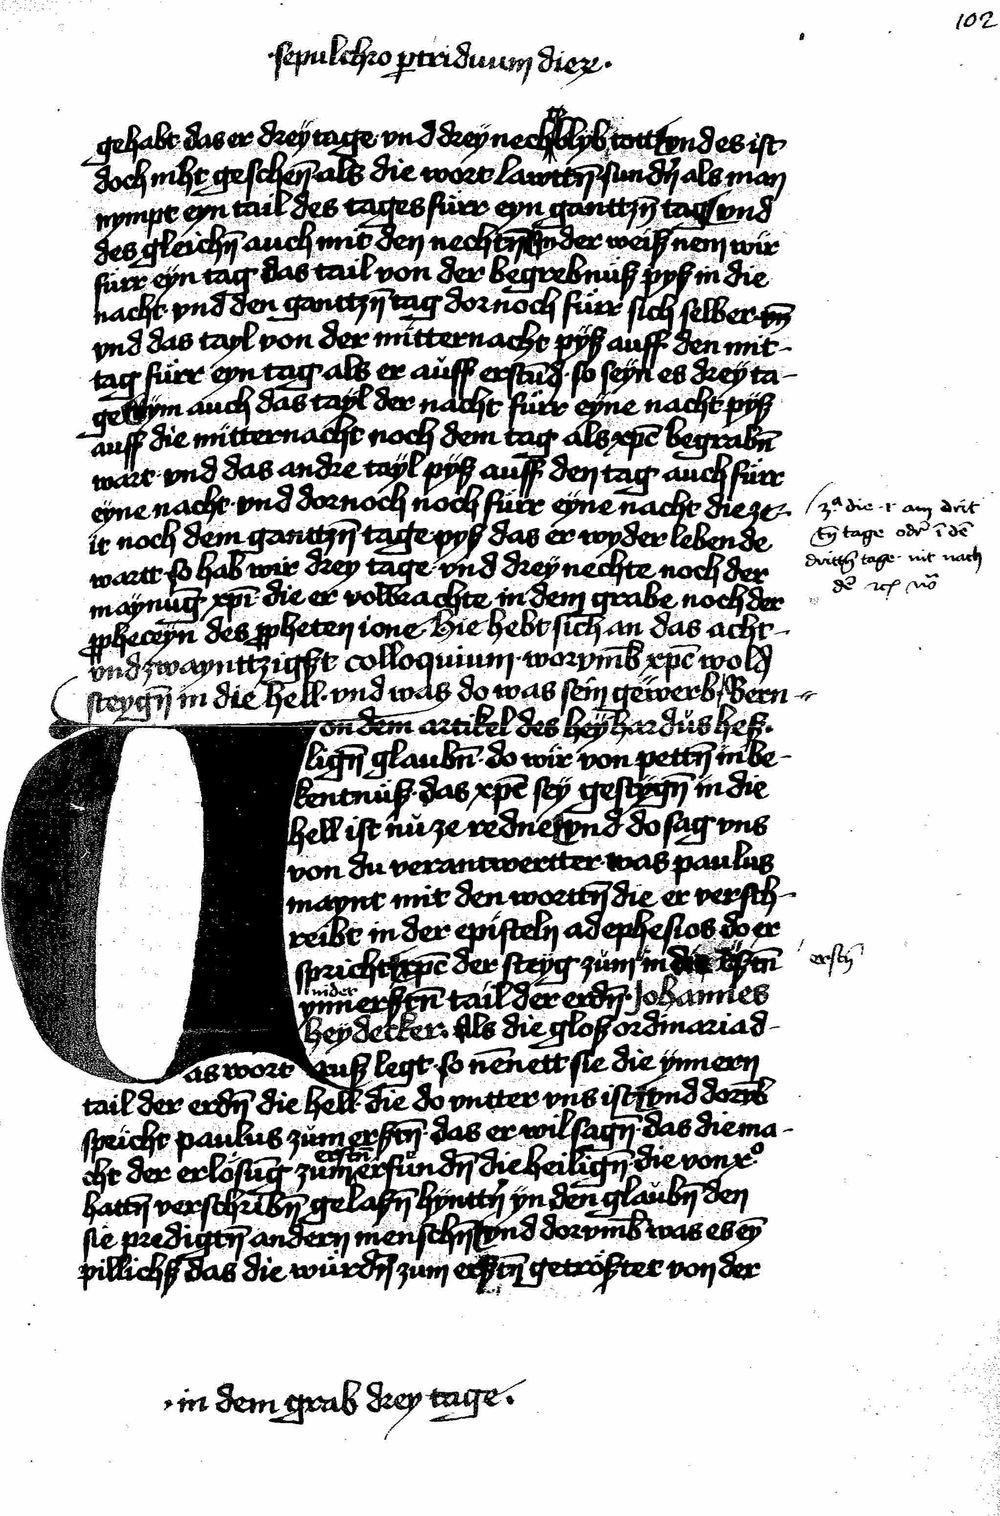 102
·sepulchro ꝑ triduum dieꝝ·
gehabt das er dreÿ tage vnd dreÿ necht blyb tott vnd es ist
doch niht geschen̄ als die wort lawttn̄ sundn̄ als man
nympt eyn tail des tages fürr eyn ganttzn̄ tag vnd
des gleichn̄ auch mit den nechtn̄ In der weiß nem wir
fürr eyn tag das tail von der begrebnüß pyß in die
nacht vnd den ganttzn̄ tag dornoch fürr sich selber
vnd das tayl von der mitternacht pÿß auff den mit-
tag fürr eyn tag als er auff erstūd so seyn es dreÿ ta-
ge auch das tayl der nacht fürr eyne nacht pyß
auff die mitternacht noch dem tag als xpc̄ begrabn̄
wart vnd das andre tayl pyß auff den tag auch fürr
eyne nacht vnd dornoch noch fürr eyne nacht die ze-
it noch dem ganttzn̄ tage pyß das er wyder lebende
wartt so hab wir drey tage vnd dreÿ nechte noch der
maynūg xpī die er volbrachte in dem grabe noch der
ꝓpheceyn̄ des ꝓpheten ione Hie hebt sich an das acht-
vnd zwaynttzigst colloquium worym̄b xpc̄ wold
steygn̄ in die hell vnd was do was sein gewerb Bern-
on dem artikel des heÿ hardus heß·
lign̄ glaubn̄ do wir von pettn̄ in be-
kentnüß das xpc̄ sey gestygn̄ in die
hell ist nu ze redne vnd do sag vns
von du verantwertter was paulus
maynt mit den worttn̄ die er versch-
reibt in der episteln ad ephesios do er
spricht xpc̄ der steyg zum in
vnder
ynn erstn̄ tail der erdn̄ Johannes
heydecker· Als die gloß ordinaria d-
as wort auß legt so nēnett sie die ynnern
tail der erdn̄ die hell die do vntter vns ist vnd dorūb
spricht paulus zum erstn̄ das er wil sagn̄ das die ma-
cht der erlösūg zum
erstn̄
erfundn̄ die heilign̄ die von x°
hattn̄ verschribn̄ gelaßn̄ hynttn̄ yn den glaubn̄ den
sie predigtn̄ andern menschn̄ vnd dorym̄b was es eȳ
pillichß das die würdn̄ zum erstn̄ getröster von der
·in dem grab drey tage·
die am drit
tn̄ tage oder ī dē
drittn̄ tage nit nach
erstn̄